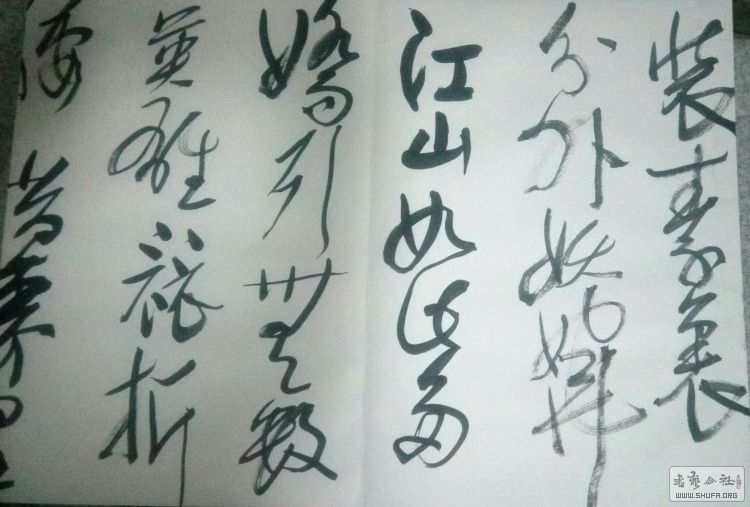 装素裹
分外妖娆
江山如此多
嬌引無数
英雄竞折
腰惜秦皇
书艺公社
WWW.SHUFA.ORG